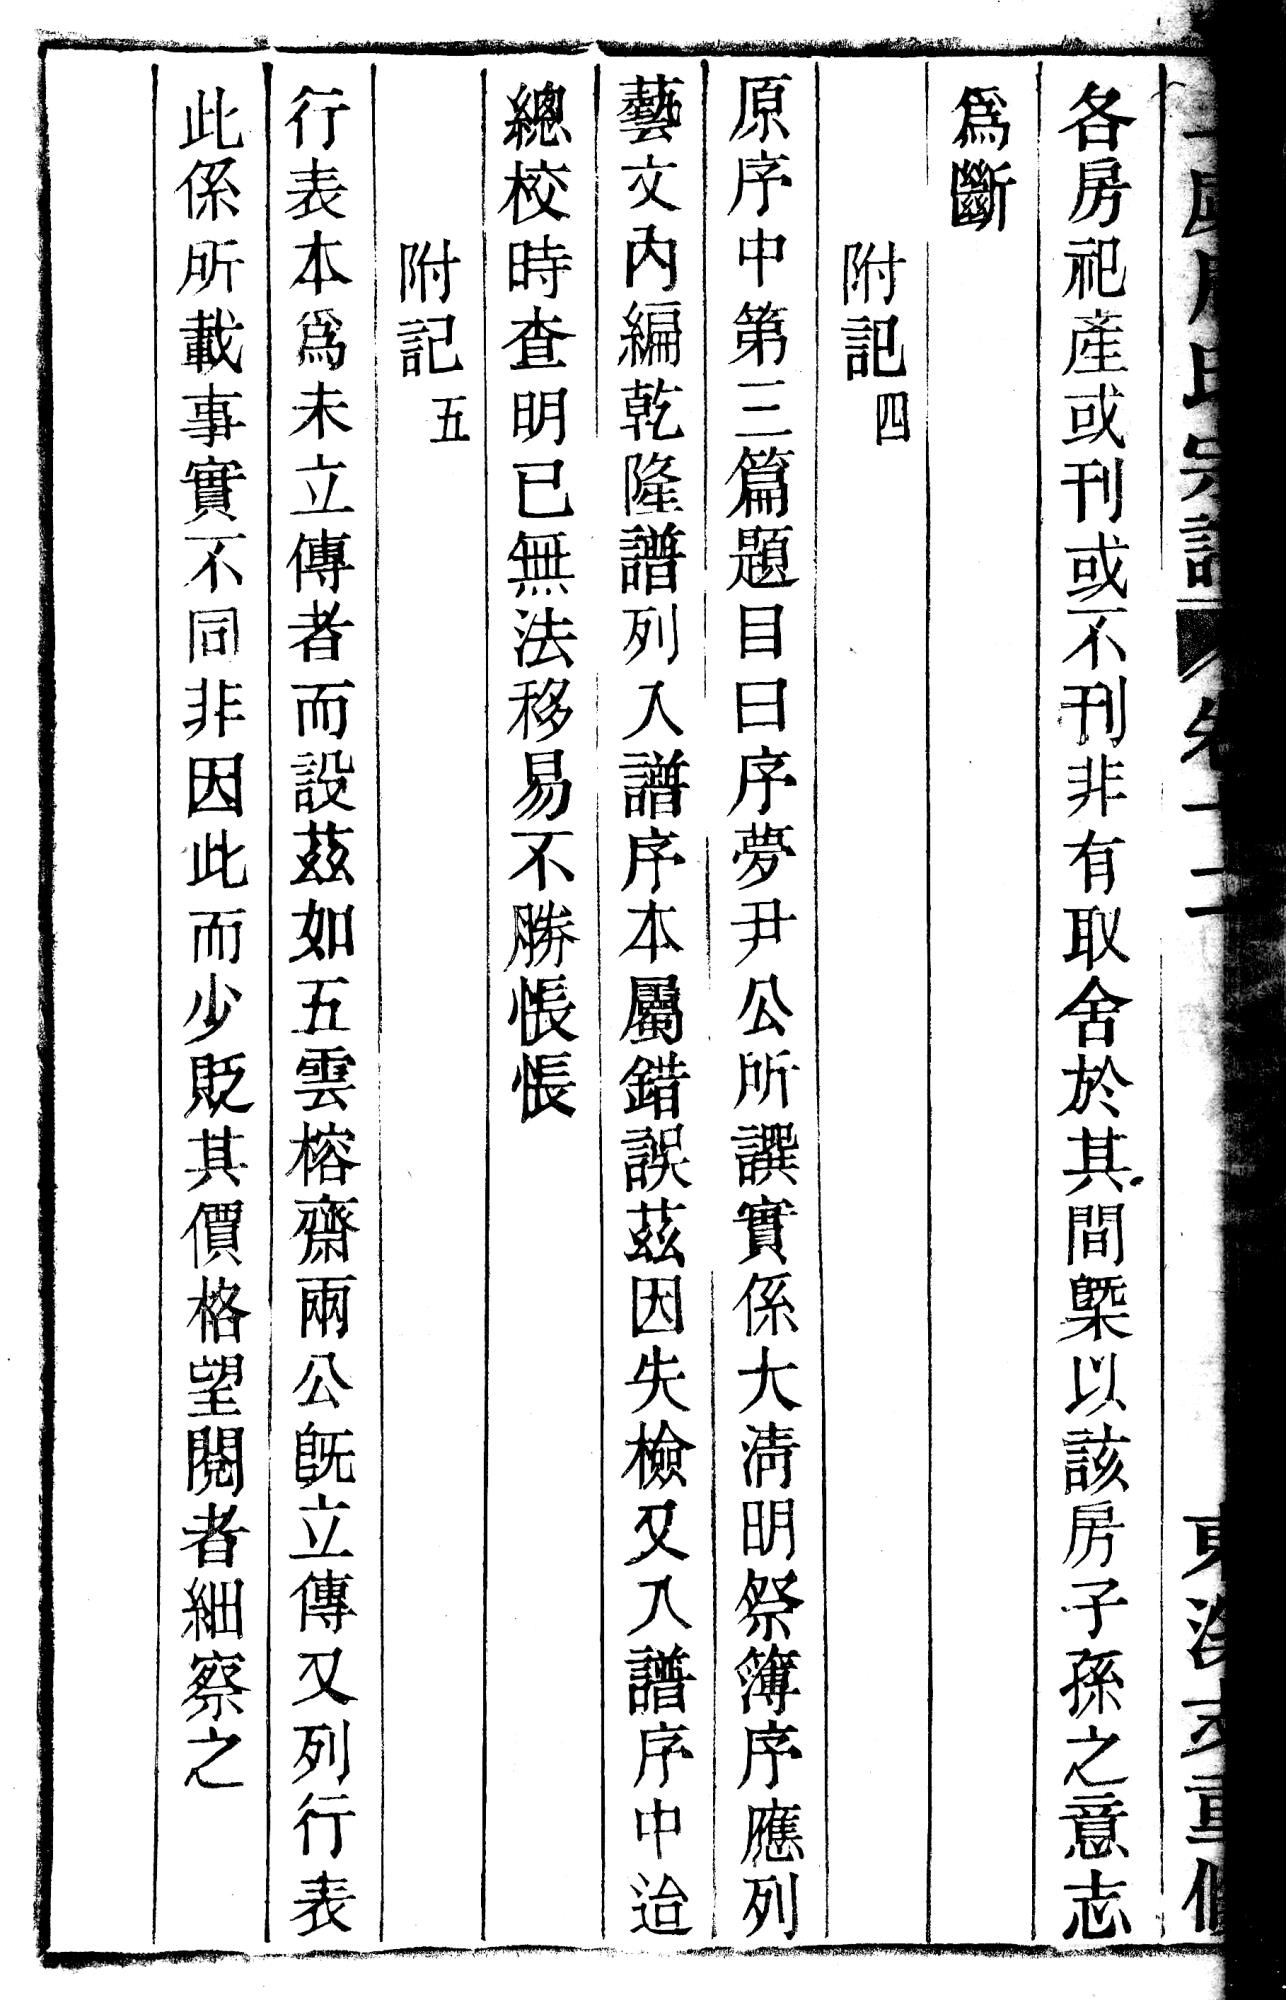 氏宗譜 卷十二
各房祀產或刊或不刊非有取舍於其間槩以該房子孫之意志
爲斷
附記四
原序中第三篇題目曰序夢尹公所譔實係大淸明祭簿序應列
藝文內編乾隆譜列入譜序本屬錯誤茲因失檢又入譜序中迨
總校時查明已無法移易不勝悵悵
附記五
行表本爲未立傳者而設茲如五雲榕齋兩公旣立傳又列行表
此係所載事實不同非因此而少貶其價格望閱者細察之